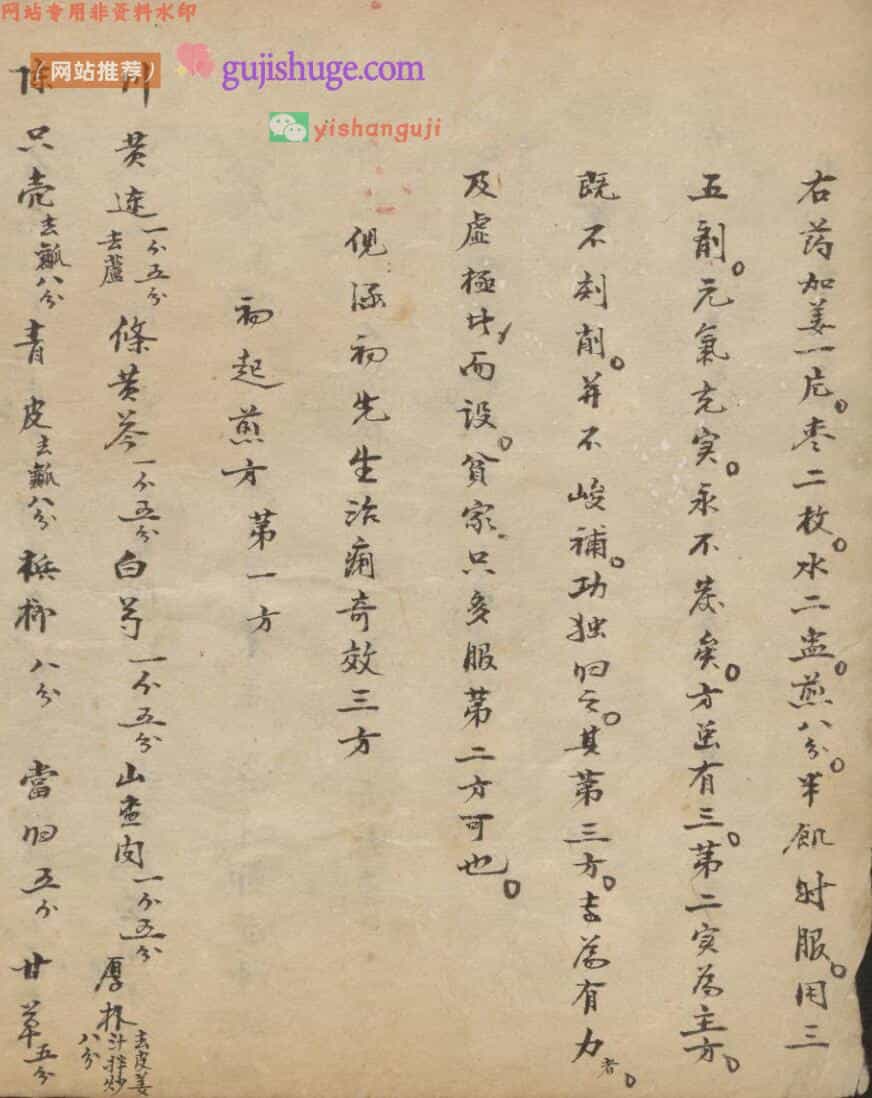 网站专用非资料水印
网站推荐
gujishuge.com
yishanguji
右药加姜一片。枣二枚。水二盅。煎八分。半飢时服。用三
五剤。元氣充实。永不发矣。方虽有三。第二实為主方。
既不刻削。并不峻補。功独归之。其第三方。专為有力者。
及虚極者而设。貧家只多服第二方可也。
倪涵初先生治痢奇效三方
初起煎方 第一方
川黄连一分五分去蘆 條黄芩一分五分 白芍一分五分 山查肉一分五分 厚朴去皮姜汁拌炒八分
陈只壳去瓤八分 青皮去瓤八分 槟榔八分 當归五分 甘草五分